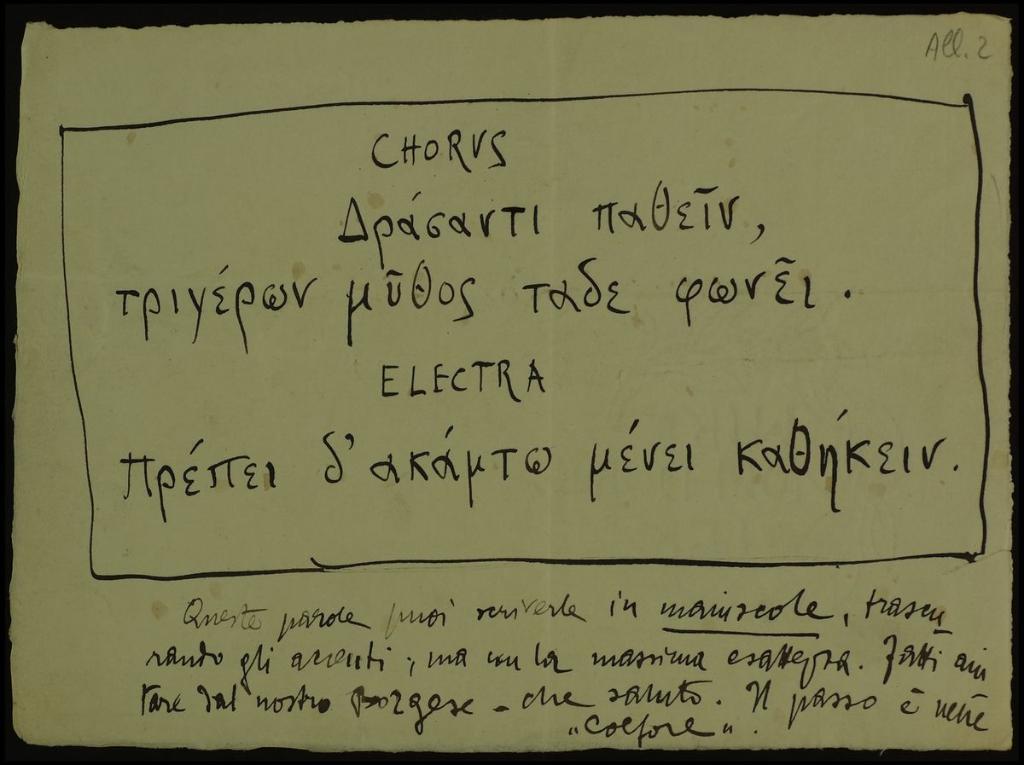 All. 2
CHORVS
Δράσαντι παθεῖν,
τριγέρων μῦθος ταδε φωνεῖ.
ELECTRA
Πρέπει δ'ακάμτω μένει καθήκειν.
Queste parole puoi scriverle in maiuscole, trascu
rando gli accenti; ma con la massima esattezza. Fatti aiu
tare dal nostro Borgese - che saluto. Il passo è nelle
"Coefore".